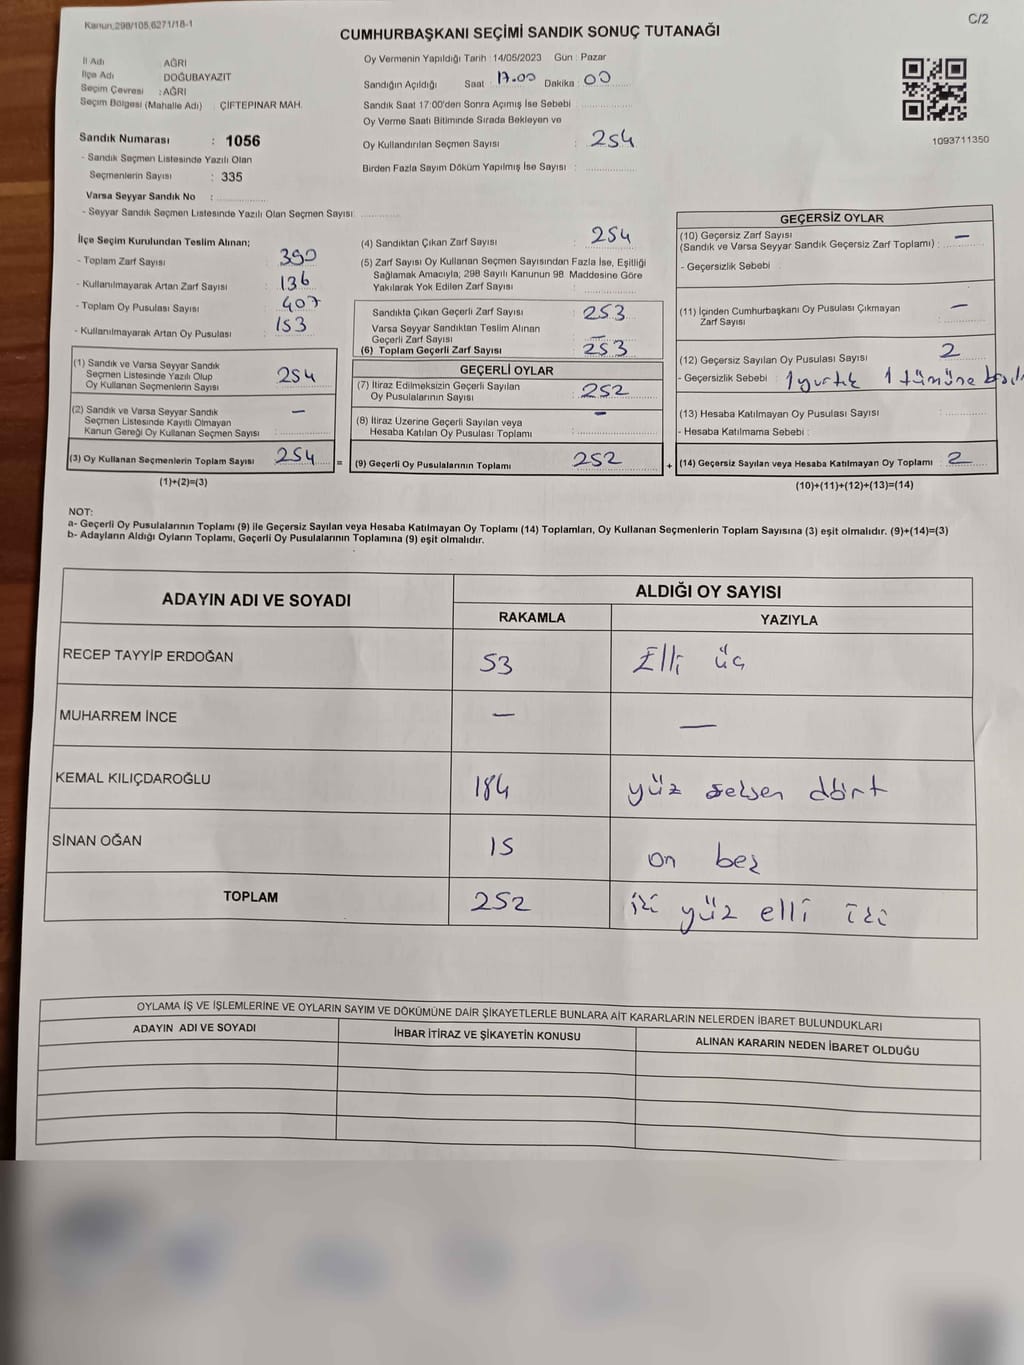 Kanun,298/105,6271/18-1
C/2
CUMHURBAŞKANI SEÇİMİ SANDIK SONUÇ TUTANAĞI
İl Adı AĞRI
İlçe Adı DOĞUBAYAZIT
Seçim Çevresi : AĞRI
Seçim Bölgesi (Mahalle Adı) : ÇİFTEPINAR MAH.
Sandık Numarası : 1056
- Sandık Seçmen Listesinde Yazılı Olan
Seçmenlerin Sayısı : 335
Varsa Seyyar Sandık No :
- Seyyar Sandık Seçmen Listesinde Yazılı Olan Seçmen Sayısı
Oy Vermenin Yapıldığı Tarih : 14/05/2023 Gün : Pazar
Sandığın Açıldığı Saat : 17.00 Dakika : 00
Sandık Saat 17:00'den Sonra Açımış İse Sebebi
Oy Verme Saati Bitiminde Sırada Bekleyen ve
Oy Kullandırılan Seçmen Sayısı : 254
Birden Fazla Sayım Döküm Yapılmış İse Sayısı :
1093711350
İlçe Seçim Kurulundan Teslim Alınan;
- Toplam Zarf Sayısı : 390
- Kullanılmayarak Artan Zarf Sayısı : 136
- Toplam Oy Pusulası Sayısı : 407
- Kullanılmayarak Artan Oy Pusulası : 153
(1) Sandık ve Varsa Seyyar Sandık
Seçmen Listesinde Yazılı Olup
Oy Kullanan Seçmenlerin Sayısı : 254
(2) Sandık ve Varsa Seyyar Sandık
Seçmen Listesinde Kayıtlı Olmayan
Kanun Gereği Oy Kullanan Seçmen Sayısı : —
(3) Oy Kullanan Seçmenlerin Toplam Sayısı 254 =
(1)+(2)=(3)
(4) Sandıktan Çıkan Zarf Sayısı : 254
(5) Zarf Sayısı Oy Kullanan Seçmen Sayısından Fazla İse, Eşitliği
Sağlamak Amacıyla; 298 Sayılı Kanunun 98 Maddesine Göre
Yakılarak Yok Edilen Zarf Sayısı :
Sandıkta Çıkan Geçerli Zarf Sayısı : 253
Varsa Seyyar Sandıktan Teslim Alınan
Geçerli Zarf Sayısı : —
(6) Toplam Geçerli Zarf Sayısı : 253
GEÇERLİ OYLAR
(7) İtiraz Edilmeksizin Geçerli Sayılan
Oy Pusulalarının Sayısı : 252
(8) İtiraz Üzerine Geçerli Sayılan veya
Hesaba Katılan Oy Pusulası Toplamı : —
(9) Geçerli Oy Pusulalarının Toplamı 252 +
GEÇERSİZ OYLAR
(10) Geçersiz Zarf Sayısı —
(Sandık ve Varsa Seyyar Sandık Geçersiz Zarf Toplamı) :
- Geçersizlik Sebebi
(11) İçinden Cumhurbaşkanı Oy Pusulası Çıkmayan —
Zarf Sayısı
(12) Geçersiz Sayılan Oy Pusulası Sayısı 2
- Geçersizlik Sebebi : 1 yurtık 1 tümüne
(13) Hesaba Katılmayan Oy Pusulası Sayısı :
- Hesaba Katılmama Sebebi :
(14) Geçersiz Sayılan veya Hesaba Katılmayan Oy Toplamı : 2
(10)+(11)+(12)+(13)=(14)
NOT:
a- Geçerli Oy Pusulalarının Toplamı (9) ile Geçersiz Sayılan veya Hesaba Katılmayan Oy Toplamı (14) Toplamları, Oy Kullanan Seçmenlerin Toplam Sayısına (3) eşit olmalıdır. (9)+(14)=(3)
b- Adayların Aldığı Oyların Toplamı, Geçerli Oy Pusulalarının Toplamına (9) eşit olmalıdır.
ADAYIN ADI VE SOYADI
ALDIĞI OY SAYISI
RAKAMLA YAZIYLA
RECEP TAYYİP ERDOĞAN 53 Elli üç
MUHARREM İNCE — —
KEMAL KILIÇDAROĞLU 184 yüz seksen dört
SİNAN OĞAN 15 on beş
TOPLAM 252 iki yüz elli iki
OYLAMA İŞ VE İŞLEMLERİNE VE OYLARIN SAYIM VE DÖKÜMÜNE DAİR ŞİKAYETLERLE BUNLARA AİT KARARLARIN NELERDEN İBARET BULUNDUKLARI
ADAYIN ADI VE SOYADI İHBAR İTİRAZ VE ŞİKAYETİN KONUSU ALINAN KARARIN NEDEN İBARET OLDUĞU